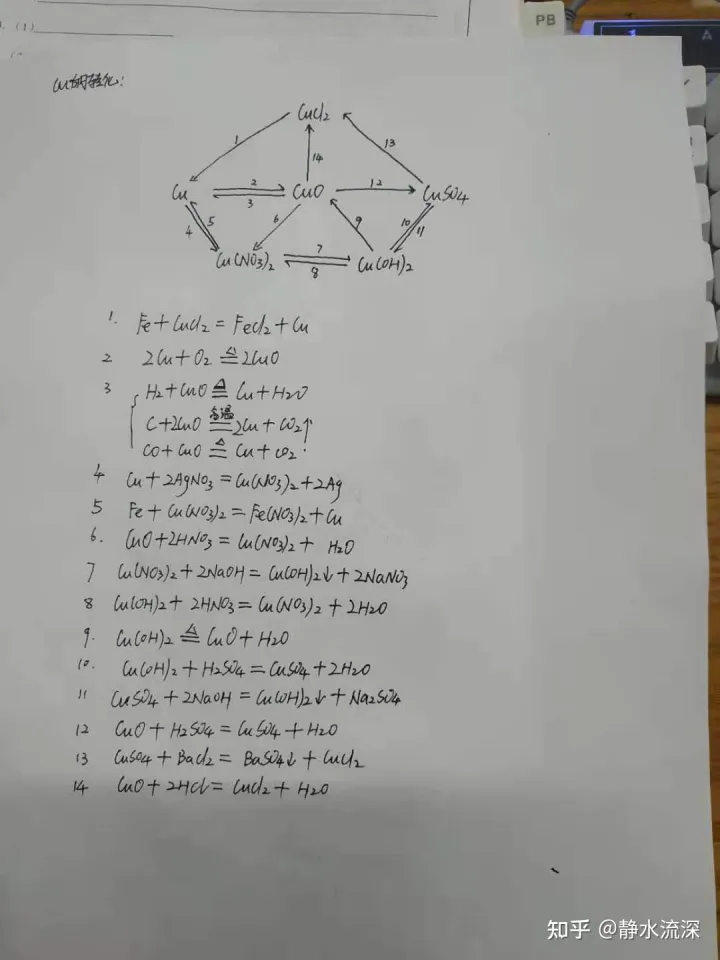 (1)
PB
Cu的转化:
CuCl2
1
14
13
Cu
2
3
CuO
12
CuSO4
4
5
6
9
10
11
Cu(NO3)2
7
8
Cu(OH)2
1. Fe+CuCl2=FeCl2+Cu
2 2Cu+O2 ≜ 2CuO
3 H2+CuO ≜ Cu+H2O
C+2CuO 高温 == 2Cu+CO2↑
CO+CuO ≜ Cu+CO2.
4 Cu+2AgNO3=Cu(NO3)2+2Ag
5 Fe+Cu(NO3)2=Fe(NO3)2+Cu
6. CuO+2HNO3=Cu(NO3)2+ H2O
7 Cu(NO3)2+2NaOH=Cu(OH)2↓+2NaNO3
8 Cu(OH)2+2HNO3=Cu(NO3)2+2H2O
9. Cu(OH)2 ≜ CuO+H2O
10. Cu(OH)2+H2SO4=CuSO4+2H2O
11 CuSO4+2NaOH=Cu(OH)2↓+Na2SO4
12 CuO+H2SO4=CuSO4+H2O
13 CuSO4+BaCl2=BaSO4↓+CuCl2
14 CuO+2HCl=CuCl2+H2O
知乎 @静水流深